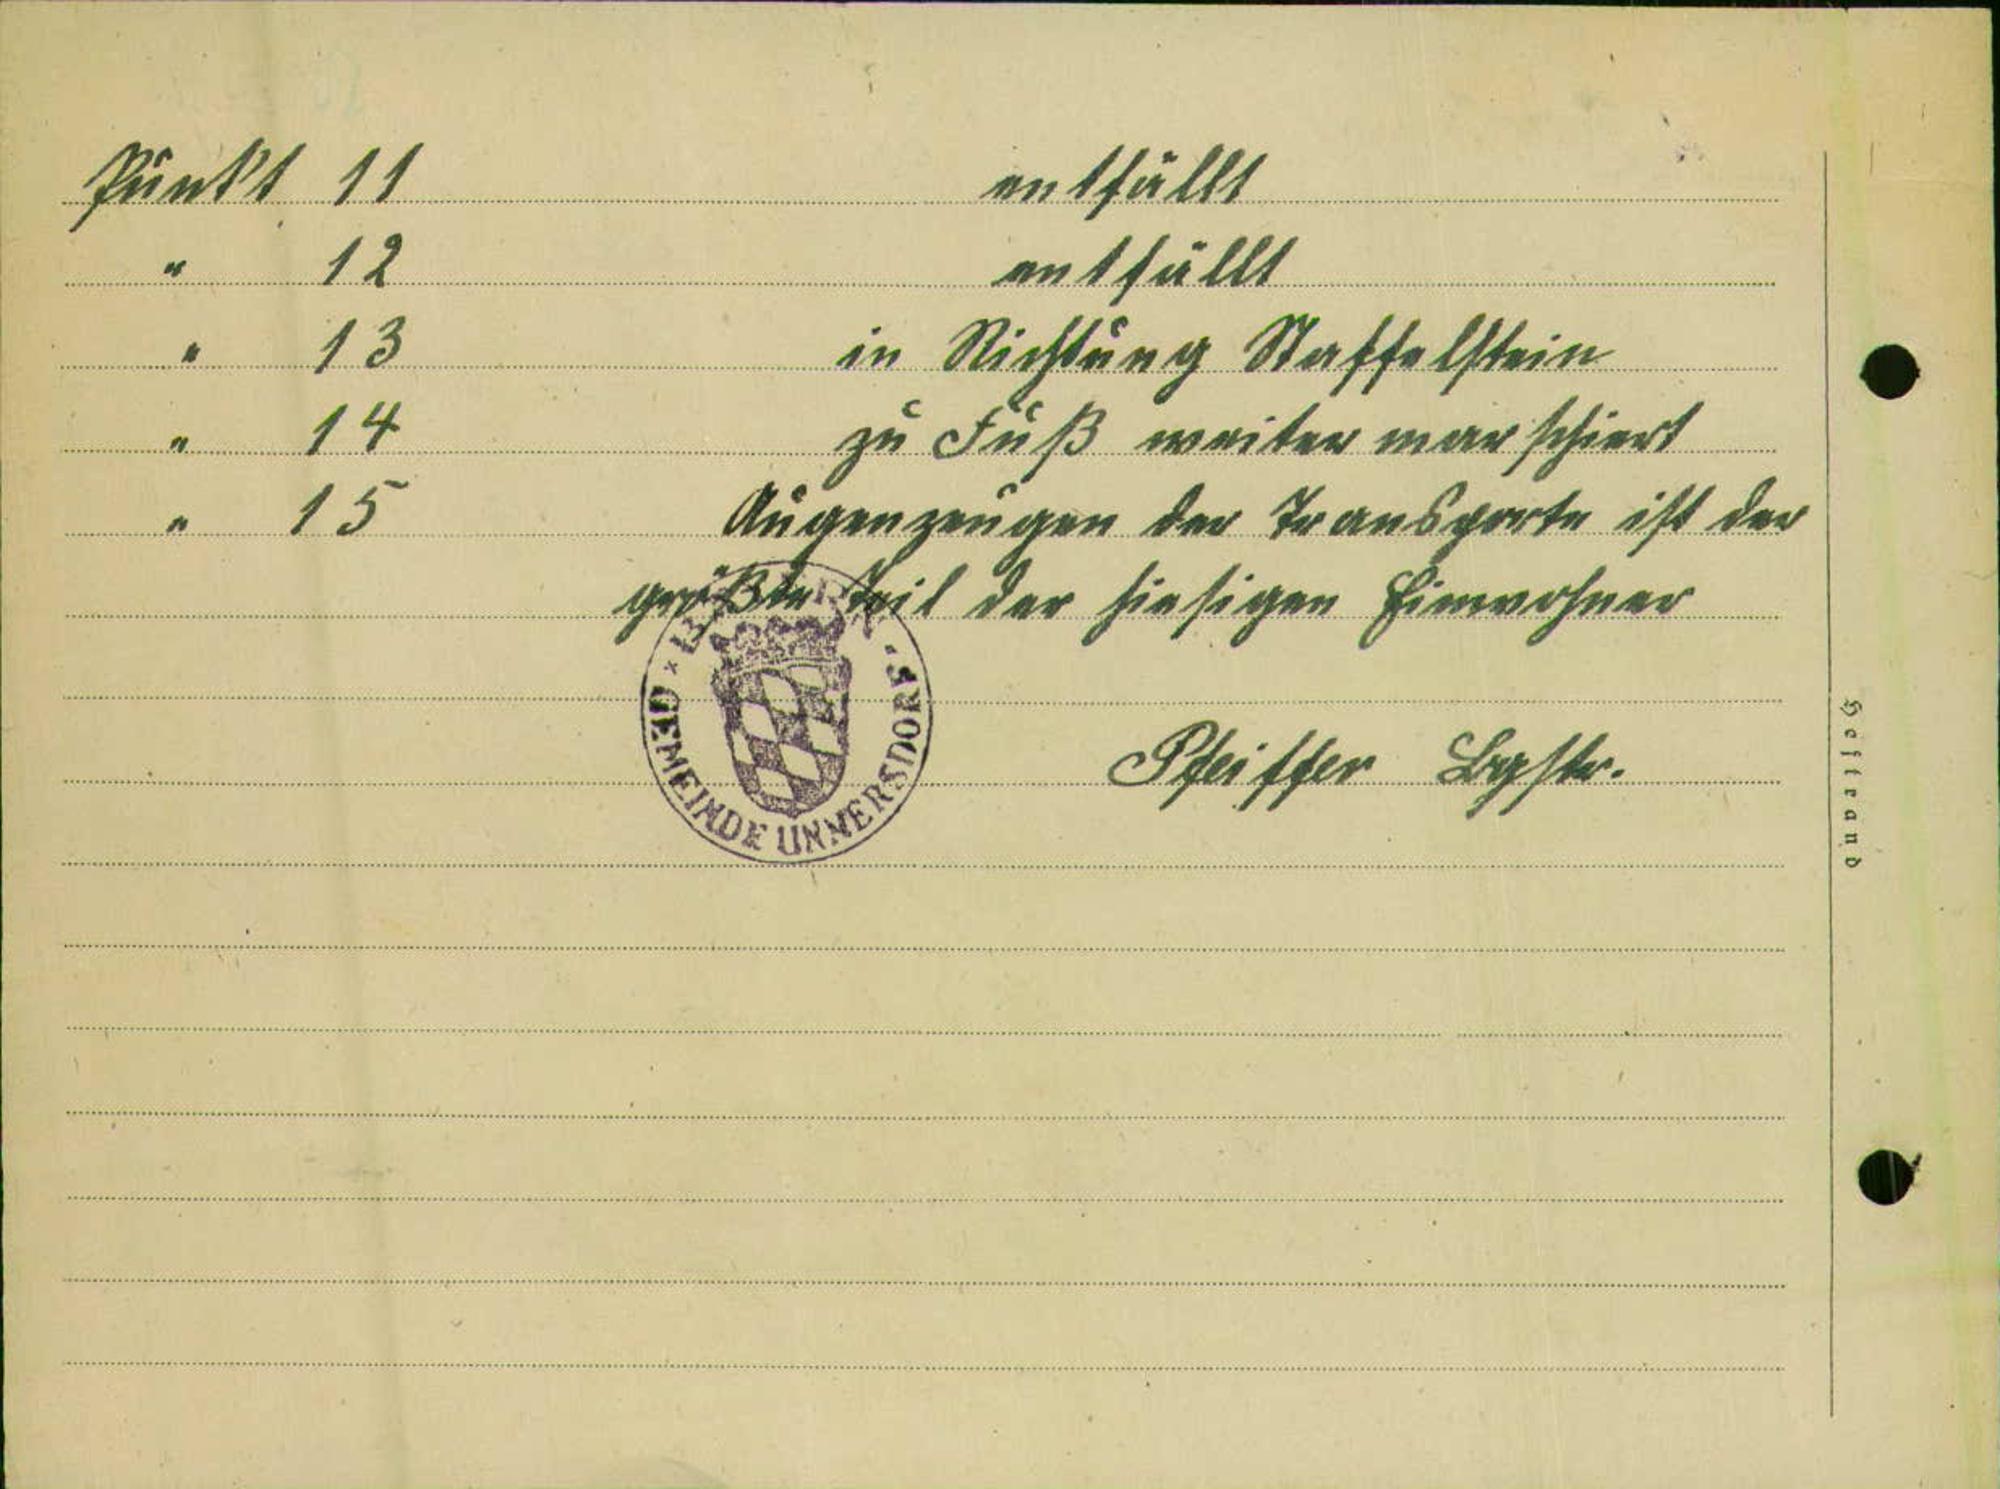 Punkt 11 entfällt
" 12 entfällt
" 13 in Richtung Staffelstein
" 14 zu Fuß weiter marschiert
" 15 Augenzeugen der Transporte ist der
größte Teil der hiesigen Einwohner
GEMEINDE UNNERSDORF
Pfeiffer Bgstr.
Heftrand